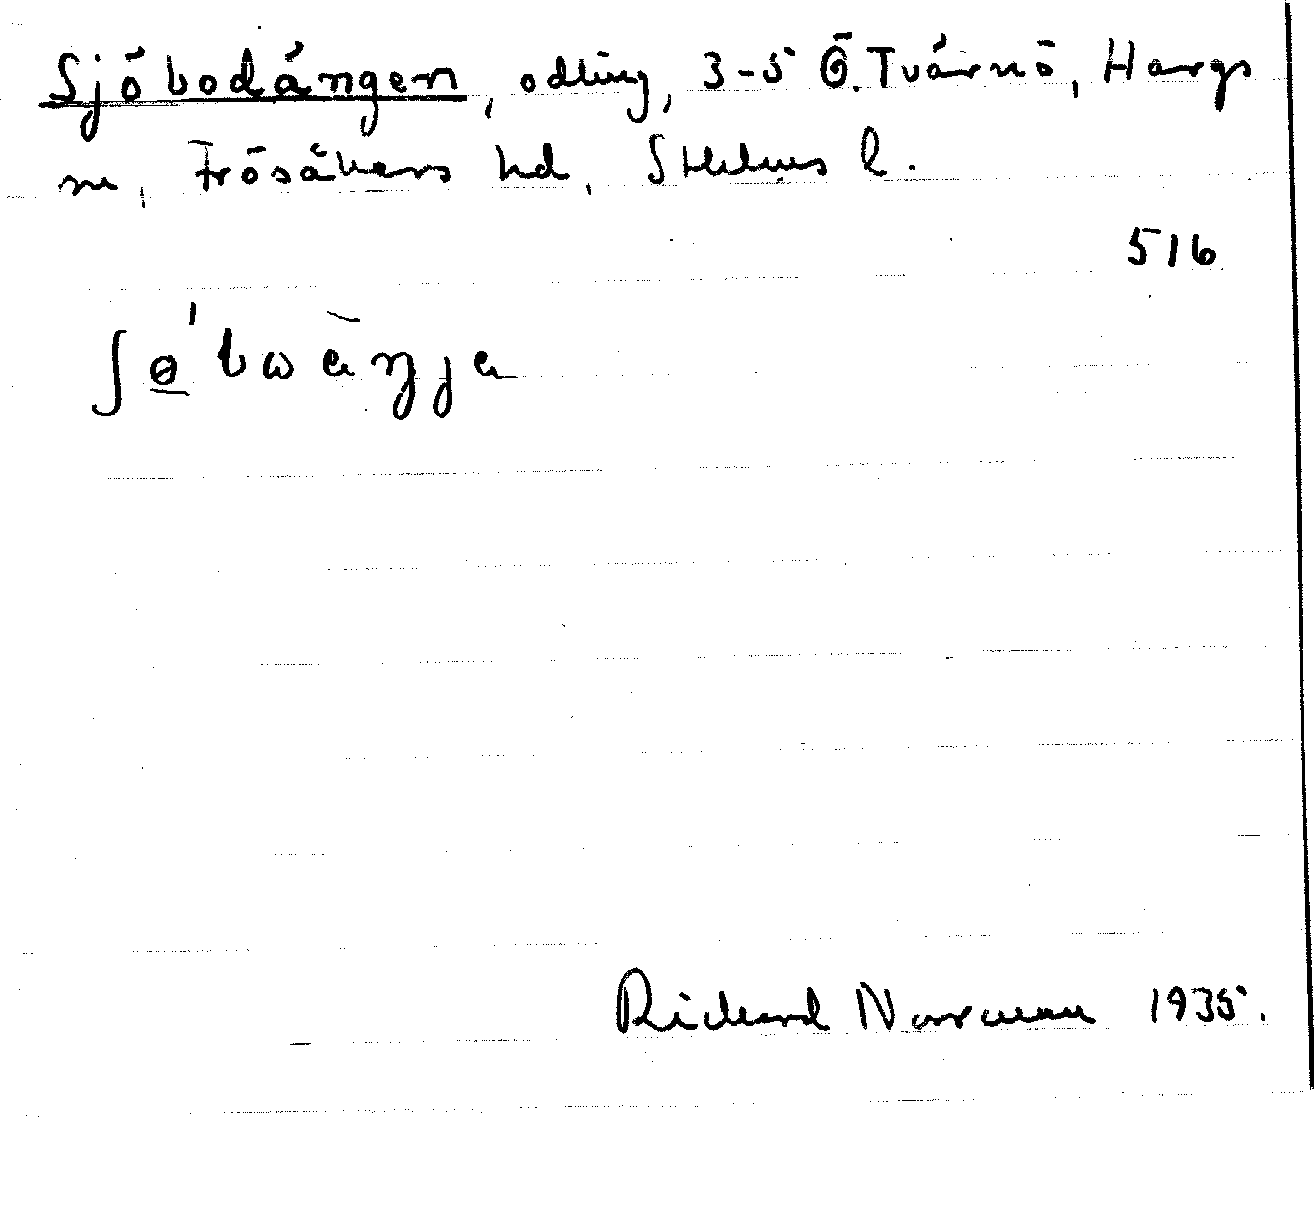 Sjöbodängen, odling, 3-5 Ö. Tvärnö, Hargs
sn, Frösåkers hd, Sthlms l.
516
ʃɵ̱'bωäŋja
Richard Norrman 1935.